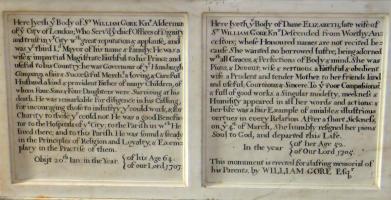 Here lyeth yͤ Body of Sͬ WILLIAM GORE Knͭ Alderman
of yͤ City of London, Who Serv'd yͤ chief Offices of Dignity
and trust in yͭ City wͭͪ great reputation & applause, and
was yͤ third Lͩ Mayor of his name & Family. He was a
wise & impartial Magistrate, faithful to his Prince; and
useful to his Country; he was Governour of yͤ Hamburgh
Company, a fair & Successful Merchͭ a loving & Careful
Husband & kind & provident Father of many Children, of
whom Four Sons & Four Daughters were Surviving at his
death. He was remarkable for diligence in his Calling,
for incouraging those to industry yͭ could work, & for
Charity to those yͭ could not. He was a good Benefac
tor to the Hospitals of yͤ City; to the Parish in wͨͪ He
lived there, and to this Parish. He was found & steady
in the Principles of Religion and Loyalty, & Exem
plary in the Practise of them.
Obijt 20ͭͪ Ian: in the Year { of his Age 64.
of our Lord 1707.
Here lyeth yͤ Body of Dame ELIZABETH, late wife of
Sͬ WILLIAM GORE Knͭ Descended from Worthy An-
cestors; whose Honoured names are not recited be-
cause She wanted no borrowed lustre, being adorned
with all Graces, & Perfections of Body & mind. She was
Pious, & Devout, wise & vertuous, a faithful & obedient
wife a Prudent and tender Mother, to her friends kind
and useful, Courteous & Sincere, to yͤ Poor Compassionate
& full of good works, a singular modesty, meekness &
Humility appear'd in all her words and actions;
her life was a fair Example of amiable & illustrious
vertues in every Relation. After a short Sickness,
on yͤ 4ͭͪ of March, She humbly resigned her pious
Soul to God, and departed this Life.
In the year { of her Age 52.
of Our Lord 1705.
This monument is erected for a lasting memorial of
his Parents, by WILLIAM GORE Esqͬ